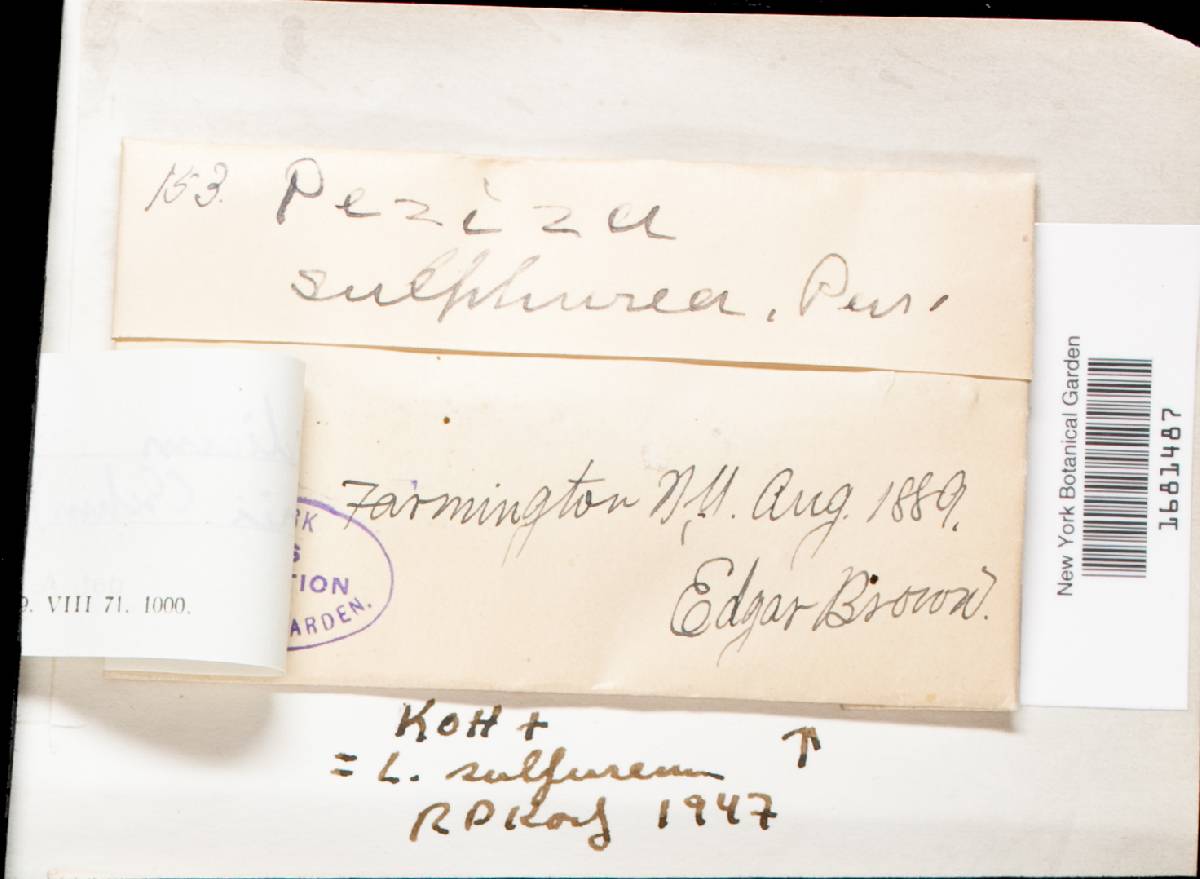 153. Peziza
sulphurea, Pers.
Farmington N.Y. Aug. 1889.
Edgar Brown.
RK
S
TION
ARDEN.
. VIII 71. 1000.
KOH +
= L. sulfureum ↑
RPKorf 1947
New York Botanical Garden
1681487